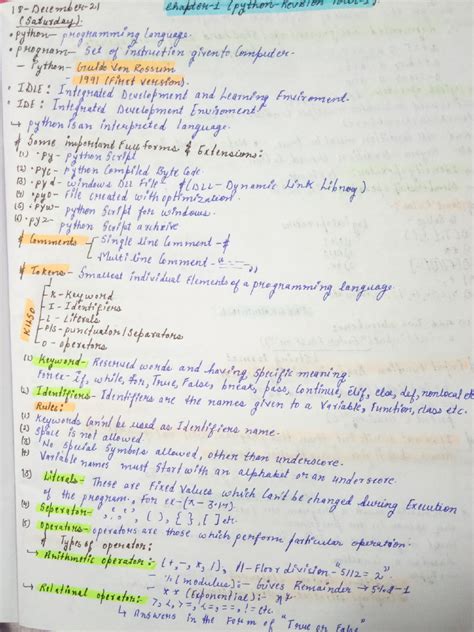 18-December-21
(Saturday)
Chapter-1 (python-Revision Tour-1)
• python- programming language.
• program- Set of instruction given to Computer.
- Python- Guido Van Rossum
- 1991 (First version).
• IDLE: Integrated Development and Learning Enviroment.
• IDE: Integrated Development Enviroment
↳ python is an interpreted language.
# Some important Full forms & Extensions:
(1) •py- python Script
(2) •pyc- python Compiled Byte Code.
(3) •pyd- windows DLL File (DLL- Dynamic Link Library).
(4) •pyo- File created with optimization.
(5) •pyw- python Script for windows.
(6) •pyz- python Script archive
# Comments Single line Comment -#
Multi line Comment -
# Tokens- Smallest individual Elements of a programming language.
K - Keyword
I - Identifiers
L - Literals
P/S- punctuators/Separators
O - operators
(1) Keyword- Reserved words and having specific meaning.
If, while, for, True, False, break, pass, Continue, Elif, else, def, nonlocal etc
(2) Identifiers- Identifiers are the names given to a Variable, Function, class etc.
Rules:
(1) Keywords can'nt be used as Identifiers name.
(2) Space is not allowed
(3) No Special Symbols allowed, other than underscore.
(4) Variable names must Start with an alphabet or an underscore.
(3) Literals- These are Fixed Values which Can't be changed During Execution
of the program. For ex-(x=3.14).
(4) Seperator- ( ), { }, [ ] etc.
(5) operators- operators are those which perform particular operation.
# Types of operator:
↳ Arithmetic operator: (+, -, *, /), //- Floor division- "5//2 = 2"
- % (modulus):- Gives Remainder → 5%2=1
- ** (Exponential):-
↳ Relational operator: >, <, >=, <=, ==, != etc.
↳ Answers in the Form of "True or False"